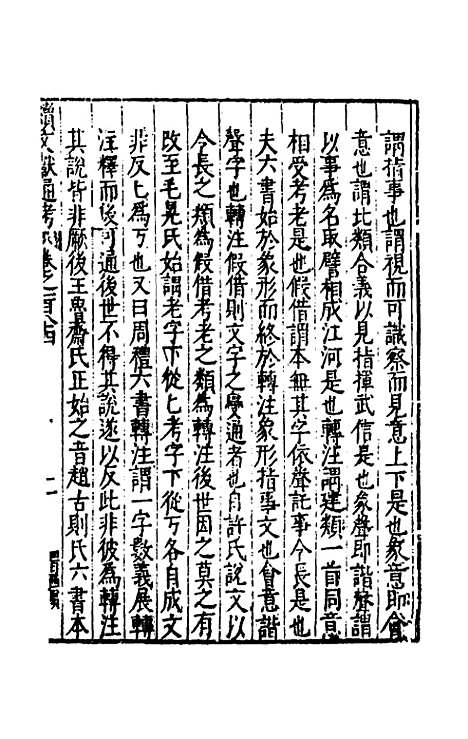 謂指事也謂視而可識察而見意上下是也象意即會
意也謂比類合義以見指揮武信是也象聲即諧聲謂
以事為名取譬相成江河是也轉注謂建類一首同意
相受考老是也假借謂本無其字依聲託事令長是也
夫六書始於象形而終於轉注象形指事文也會意諧
聲字也轉注假借則文字之變通者也自許氏說文以
令長之類為假借考老之類為轉注後世因之莫之有
改至毛晃氏始謂老字下從匕考字下從丂各自成文
非反匕為丂也又曰周禮六書轉注謂一字數義展轉
注釋而後可通後世不得其說遂以反此非彼為轉注
其說皆非厥後王魯齋氏正始之音趙古則氏六書本
續文獻通考 卷之一百八四
二